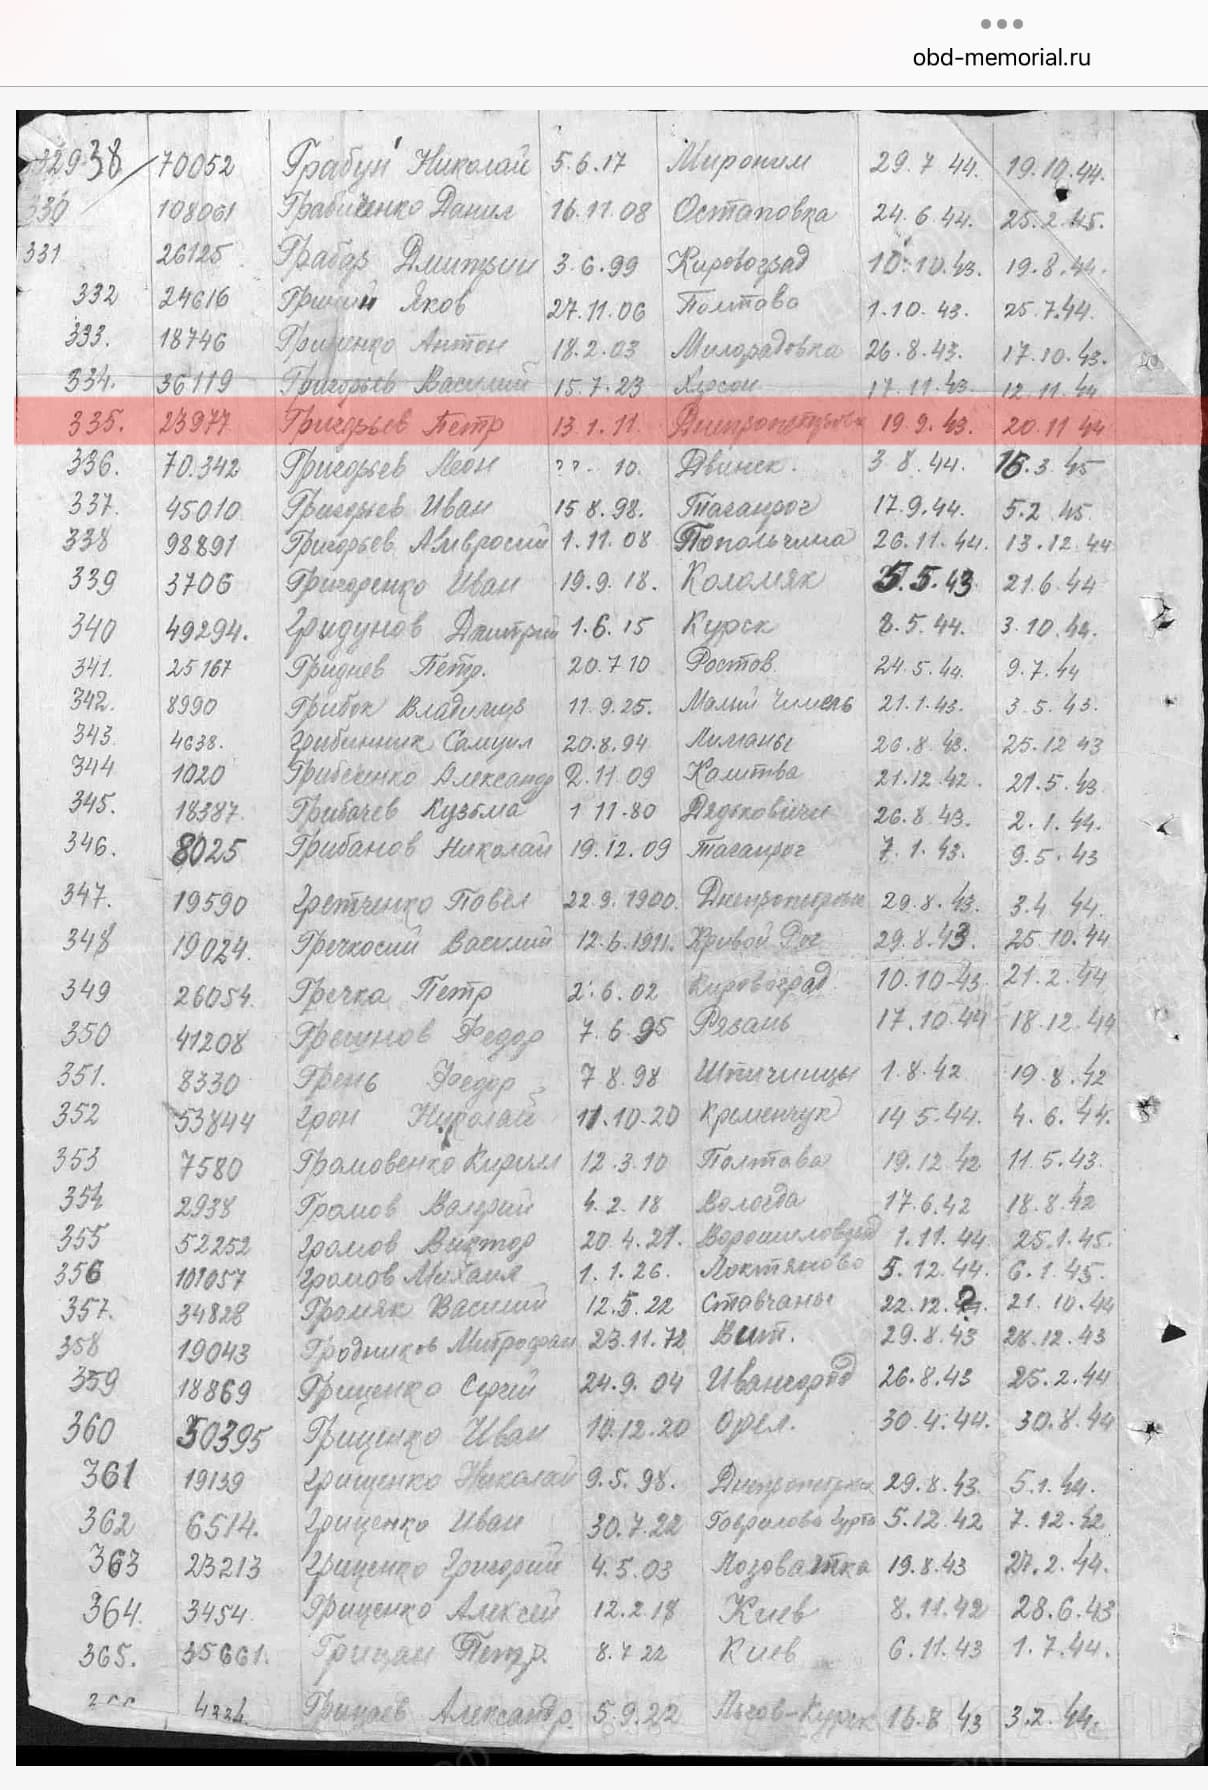 obd-memorial.ru
32938 70052 Грабун Николай 5.6.17 Миропим 29.7.44. 19.10.44.
330 108061 Грабиченко Данил 16.11.08 Остаповка 24.6.44. 25.2.45.
331 26125 Грабар Дмитрии 3.6.99 Кировоград 10.10.43. 19.8.44.
332 24616 Яков 27.11.06 Полтава 1.10.43. 25.7.44.
333. 18746 Гриценко Антон 18.2.03 Милорадовка 26.8.43. 17.10.43.
334. 36119 Григорьев Василий 15.7.23 Херсон 17.11.43. 12.11.44
335. 23977 Григорьев Петр 13.1.11. 19.9.43. 20.11 44
336. 70.342 Григорьев Леон ??. 10. Двинск. 3 8.44. 15.3.45
337. 45010 Григорьев Иван 15 8.98. Таганрог 17.9.44. 5.2 45.
338 98891 Григорьев Амвросий 1.11.08 Попольчина 26.11.44. 13.12 44
339 3706 Григоренко Иван 19.9.18. Коломяк 5.5.43. 21.6.44
340 49294. Гридунов Дмитрий 1.6.15 Курск 8.5.44. 3.10.44.
341. 25167 Гриднев Петр. 20.7 10 Ростов 24.5.44. 9.7.44
342. 8990 Грибок Владимир 11.9.25. Малый 21.1.43. 3.5.43.
343 4638. Грибинник Самуил 20.8.94 Лиманы 26.8.43. 25.12 43
344 1020 Грибеченко Александр 2.11.09 Калитва 21.12.42. 21.5.43
345. 18387. Грибачев Кузьма 1 11.80 Дядьковичи 26.8.43. 2.1.44.
346. 8025 Грибанов Николай 19.12.09 Таганрог 7.1.43. 9.5.43
347. 19590 Гретченко Павел 22.9.1900. 29.8.43. 3.4 44.
348 19024. Гречкосий Василий 12.6.1911. Кривой Рог 29.8.43. 25.10.44
349 26054. Гречка Петр 2.6.02 Кировоград 10.10.43 21.2.44
350 41208 Федор 7.6.95 Рязань 17.10.44 18.12.44
351. 8330 Грень Федор 7 8.98 Шпичинцы 1.8.42 19.8.42
352 53844 Грон Николай 11.10.20 Кременчук 14 5.44. 4.6.44.
353 7580 Громовенко Кирилл 12.3.10 Полтава 19.12 42 11.5.43.
354 2938 Громов Валерий 4.2.18 Вологда 17.6.42 18.8.42
355 52252 Громов Виктор 20.4.21. Ворошиловград 1.11.44. 25.1.45.
356 101057 Громов Михаил 1.1.26. Локтяново 5.12.44. 6.1.45.
357. 34828 Громяк Василий 12.5.22 Ставчаны 22.12. 21.10.44
358 19043 Гродников Митрофан 23.11.72 Вит. 29.8.43 28.12.43
359 18869 Гриценко Сергий 24.9.04 Ивангород 26.8.43 25.2.44
360 30395 Гриценко Иван 10.12.20 Орел. 30.4.44. 30.8.44
361 19139 Грищенко Николай 9.5.98. 29.8.43. 5.1.44.
362 6514. Гриценко Иван 30.7.22 Гаврилова 5.12.42 7.12.42
363 23213 Гриценко Григорий 4.5.03 Лозоватка 19.8.43 27.2.44.
364. 3454 Гриценко Алексей 12.2.18 Киев 8.11.42 28.6.43
365. 35661. Грицан Петр. 8.7 22 Киев 6.11.43 1.7.44.
4334. Грицаев Александр. 5.9.22 Льгов-Курск 16.8 43 3.2.44.